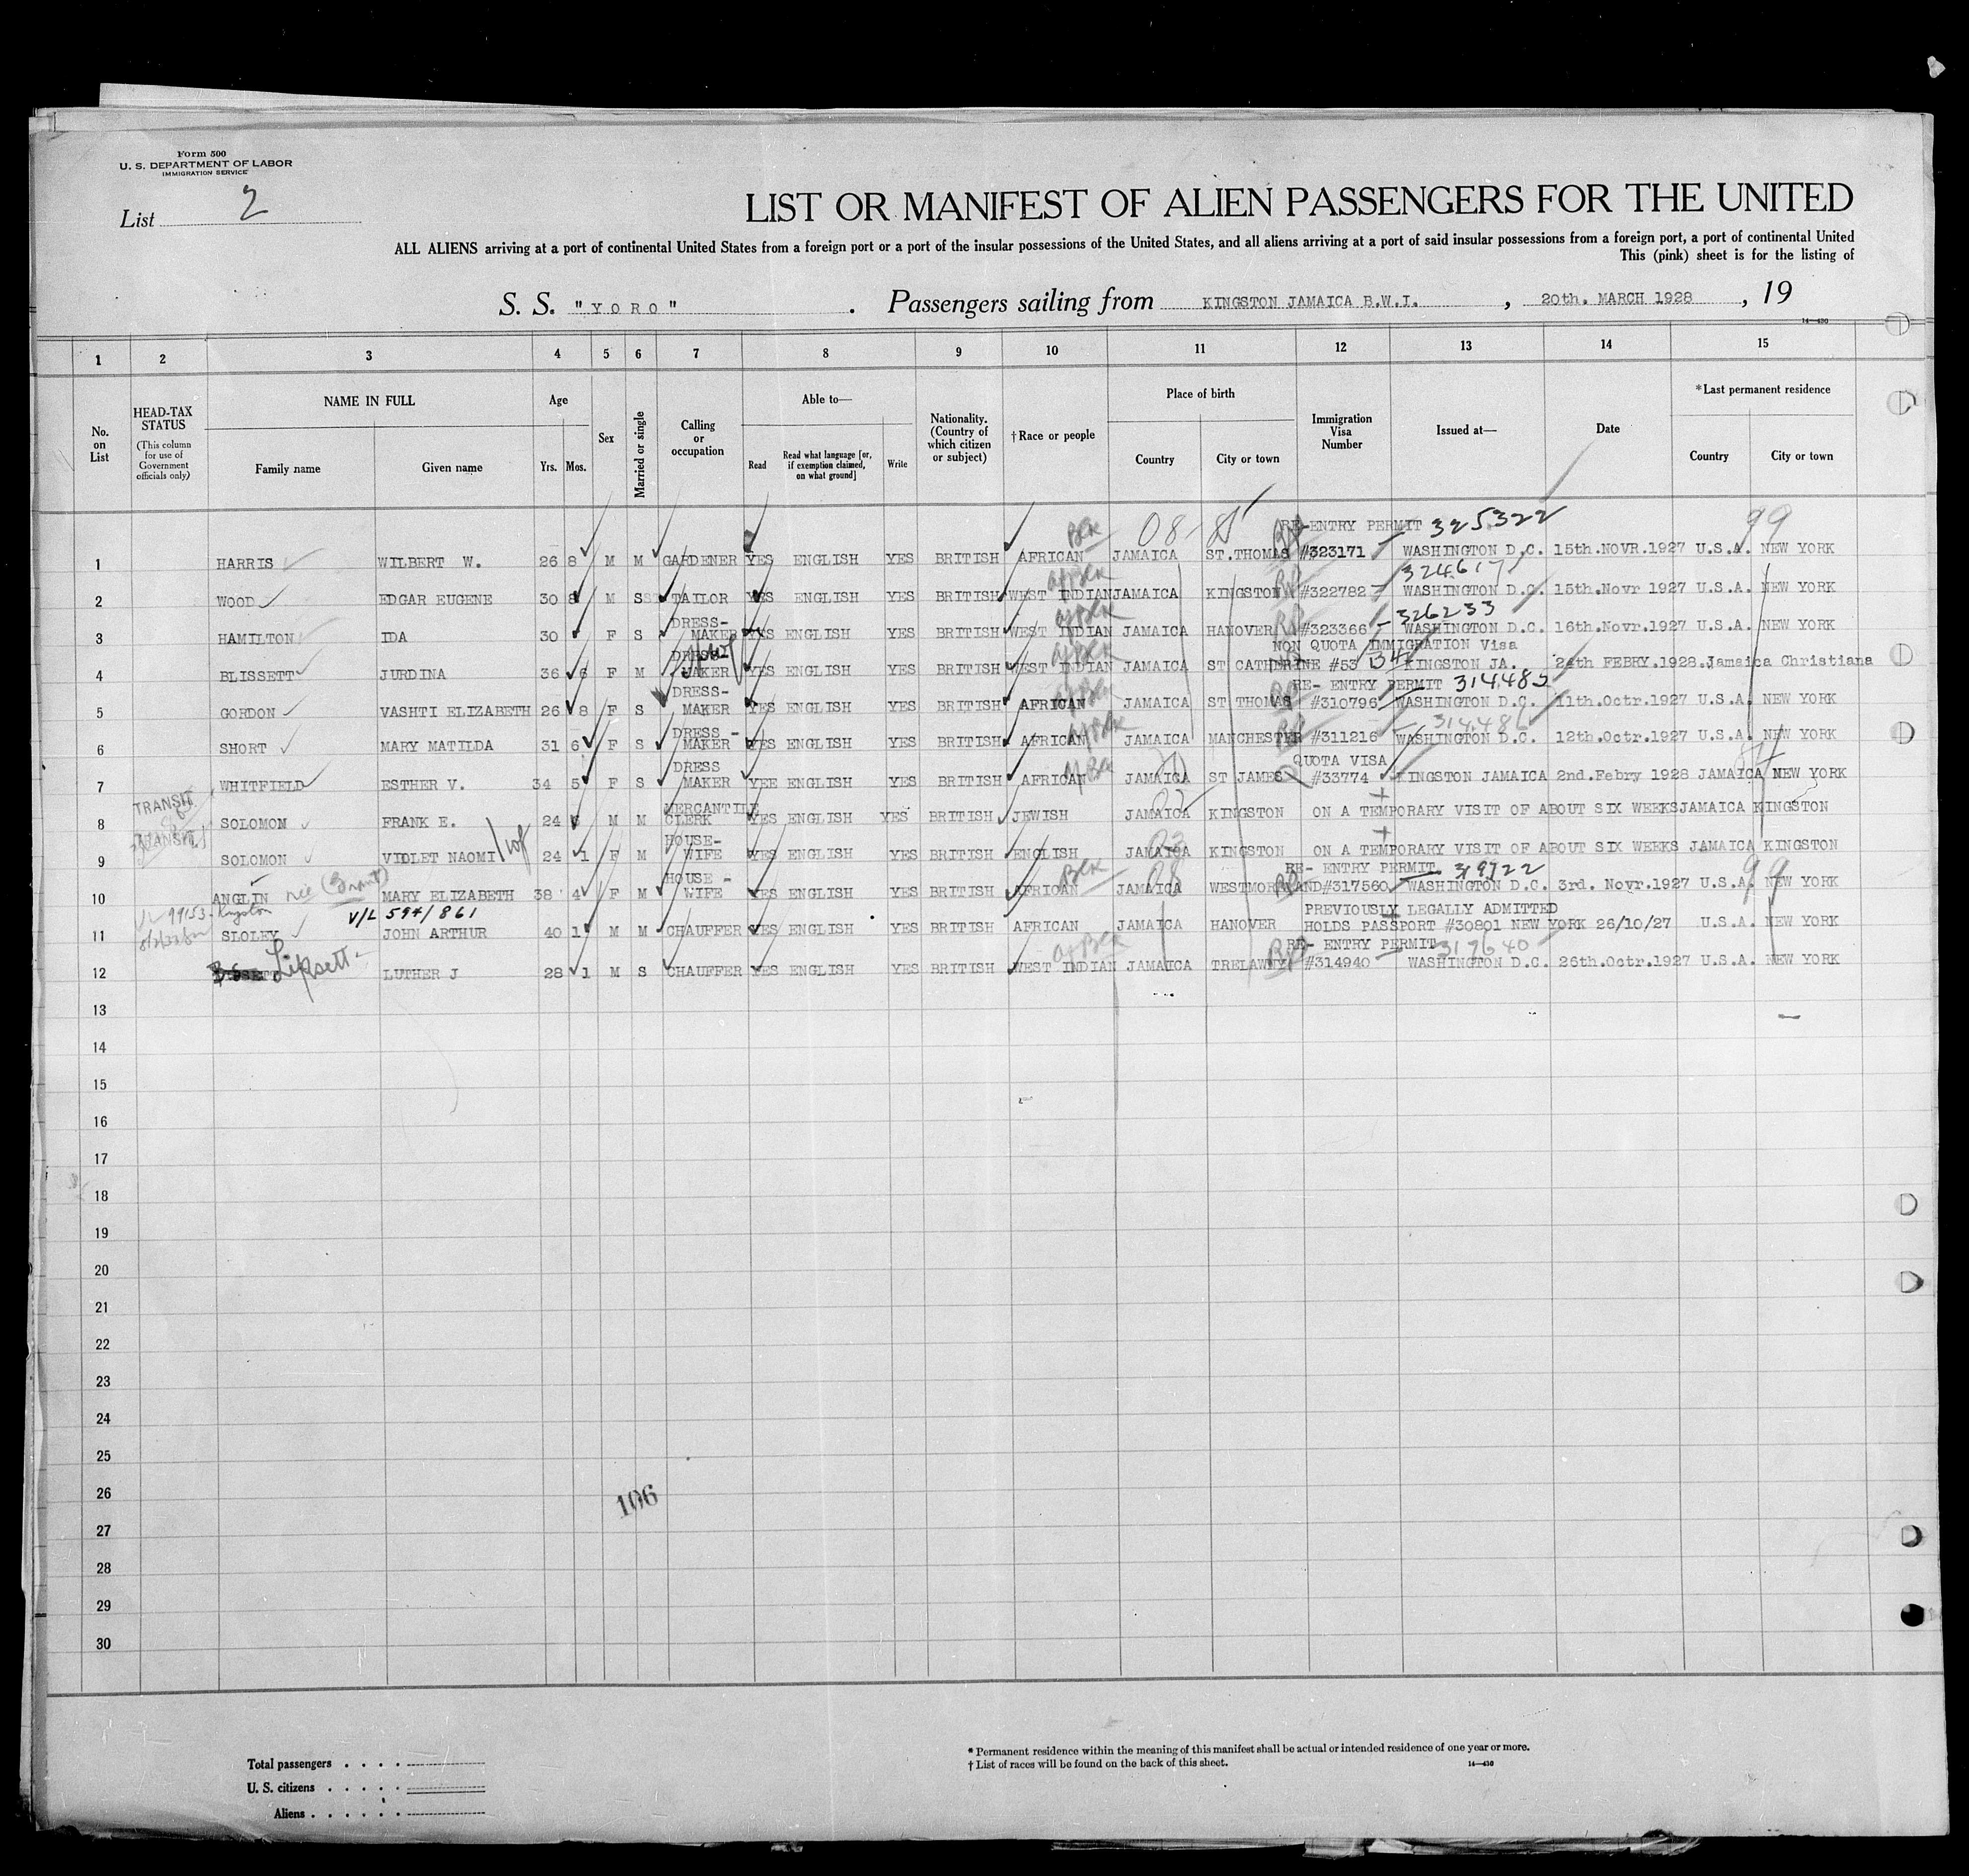 Form 500
U. S. DEPARTMENT OF LABOR
IMMIGRATION SERVICE
List 2
LIST OR MANIFEST OF ALIEN PASSENGERS FOR THE UNITED
ALL ALIENS arriving at a port of continental United States from a foreign port or a port of the insular possessions of the United States, and all aliens arriving at a port of said insular possessions from a foreign port, a port of continental United
This (pink) sheet is for the listing of
S. S. "YORO" . Passengers sailing from KINGSTON JAMAICA B.W.I. , 20th. MARCH 1928 , 19
14—430
1 2 3 4 5 6 7 8 9 10 11 12 13 14 15
No. on List
HEAD-TAX STATUS
(This column for use of Government officials only)
NAME IN FULL
Family name Given name
Age
Yrs. Mos.
Sex
Married or single
Calling or occupation
Able to—
Read
Read what language [or, if exemption claimed, on what ground]
Write
Nationality. (Country of which citizen or subject)
† Race or people
Place of birth
Country City or town
Immigration Visa Number
Issued at—
Date
*Last permanent residence
Country City or town
Blk 08 RE-ENTRY PERMIT 325322 99
1 HARRIS WILBERT W. 26 8 M M GARDENER YES ENGLISH YES BRITISH AFRICAN JAMAICA ST.THOMAS #323171 WASHINGTON D.C. 15th.NOVR.1927 U.S.A. NEW YORK
324617
2 WOOD EDGAR EUGENE 30 8 M S TAILOR YES ENGLISH YES BRITISH WEST INDIAN JAMAICA KINGSTON #322782 WASHINGTON D.C. 15th.Novr 1927 U.S.A. NEW YORK
326233
3 HAMILTON IDA 30 F S DRESS-MAKER YES ENGLISH YES BRITISH WEST INDIAN JAMAICA HANOVER #323366 WASHINGTON D.C. 16th.Novr.1927 U.S.A. NEW YORK
NON QUOTA IMMIGRATION Visa
4 BLISSETT JURDINA 36 6 F M DRESS-MAKER YES ENGLISH YES BRITISH WEST INDIAN JAMAICA ST CATHERINE #53 KINGSTON JA. 24th FEBRY.1928. Jamaica Christiana
RE- ENTRY PERMIT 314482
5 GORDON VASHTI ELIZABETH 26 8 F S DRESS-MAKER YES ENGLISH YES BRITISH AFRICAN JAMAICA ST THOMAS #310796 WASHINGTON D.C. 11th.Octr.1927 U.S.A. NEW YORK
314486
6 SHORT MARY MATILDA 31 6 F S DRESS - MAKER YES ENGLISH YES BRITISH AFRICAN JAMAICA MANCHESTER #311216 WASHINGTON D.C. 12th.Octr.1927 U.S.A. NEW YORK
QUOTA VISA
7 WHITFIELD ESTHER V. 34 5 F S DRESS MAKER YEE ENGLISH YES BRITISH AFRICAN JAMAICA ST JAMES #33774 KINGSTON JAMAICA 2nd.Febry 1928 JAMAICA NEW YORK
TRANSIT
8 SOLOMON FRANK E. 24 M M MERCANTILE CLERK YES ENGLISH YES BRITISH JEWISH JAMAICA KINGSTON ON A TEMPORARY VISIT OF ABOUT SIX WEEKS JAMAICA KINGSTON
TRANSIT
9 SOLOMON VIOLET NAOMI 24 1 F M HOUSE-WIFE YES ENGLISH YES BRITISH ENGLISH JAMAICA KINGSTON ON A TEMPORARY VISIT OF ABOUT SIX WEEKS JAMAICA KINGSTON
Blk 08 RE- ENTRY PERMIT 319722 99
10 ANGLIN nee (Grant) MARY ELIZABETH 38 4 F M HOUSE - WIFE YES ENGLISH YES BRITISH AFRICAN JAMAICA WESTMORLAND #317560 WASHINGTON D.C. 3rd. Novr.1927 U.S.A. NEW YORK
Kingston V/L 594/861 PREVIOUSLY LEGALLY ADMITTED
11 SLOLEY JOHN ARTHUR 40 1 M M CHAUFFER YES ENGLISH YES BRITISH AFRICAN JAMAICA HANOVER HOLDS PASSPORT #30801 NEW YORK 26/10/27 U.S.A. NEW YORK
RE- ENTRY PERMIT 317640
12 Lipsett LUTHER J 28 1 M S CHAUFFER YES ENGLISH YES BRITISH WEST INDIAN JAMAICA TRELAWNY #314940 WASHINGTON D.C. 26th.Octr.1927 U.S.A. NEW YORK
13
14
15
16
17
18
19
20
21
22
23
24
25
26
106
27
28
29
30
Total passengers
U. S. citizens
Aliens
* Permanent residence within the meaning of this manifest shall be actual or intended residence of one year or more.
† List of races will be found on the back of this sheet.
14—430